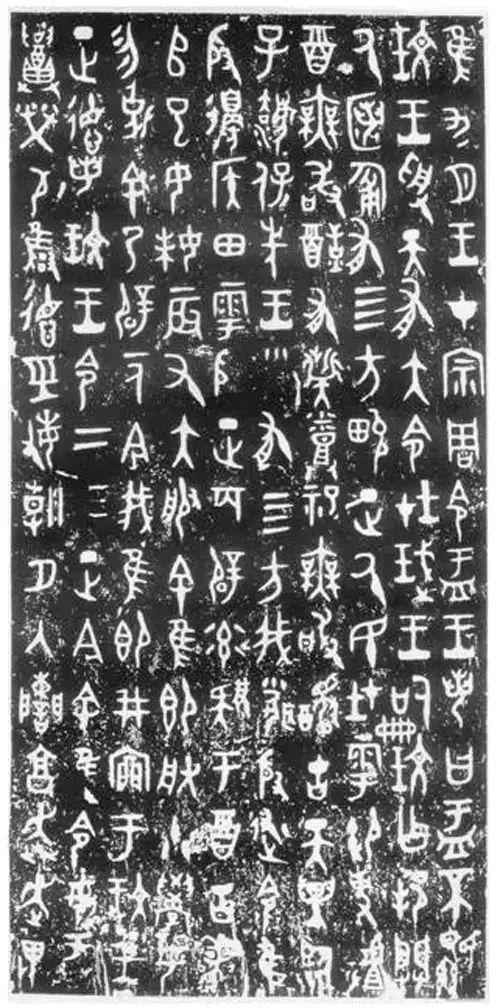 隹九月王才宗周令盂王若曰盂不顯
玟王受天有大令在珷王嗣玟乍邦闢
厥匿匍有四方畯正厥民在雩御事虘
酉無敢酖有祡烝祀無敢醻古天異臨
子灋保先王有四方我聞殷述令隹
殷邊侯田雩殷正百辟率肄于酉古喪
𠂤巳女妹辰又大服余隹即朕小學女
勿剋余乃辟一人今我隹即井㐭于玟王
正德若玟王令二三正今余隹令女盂
召榮敬雝德巠敏朝夕入讕享奔走畏